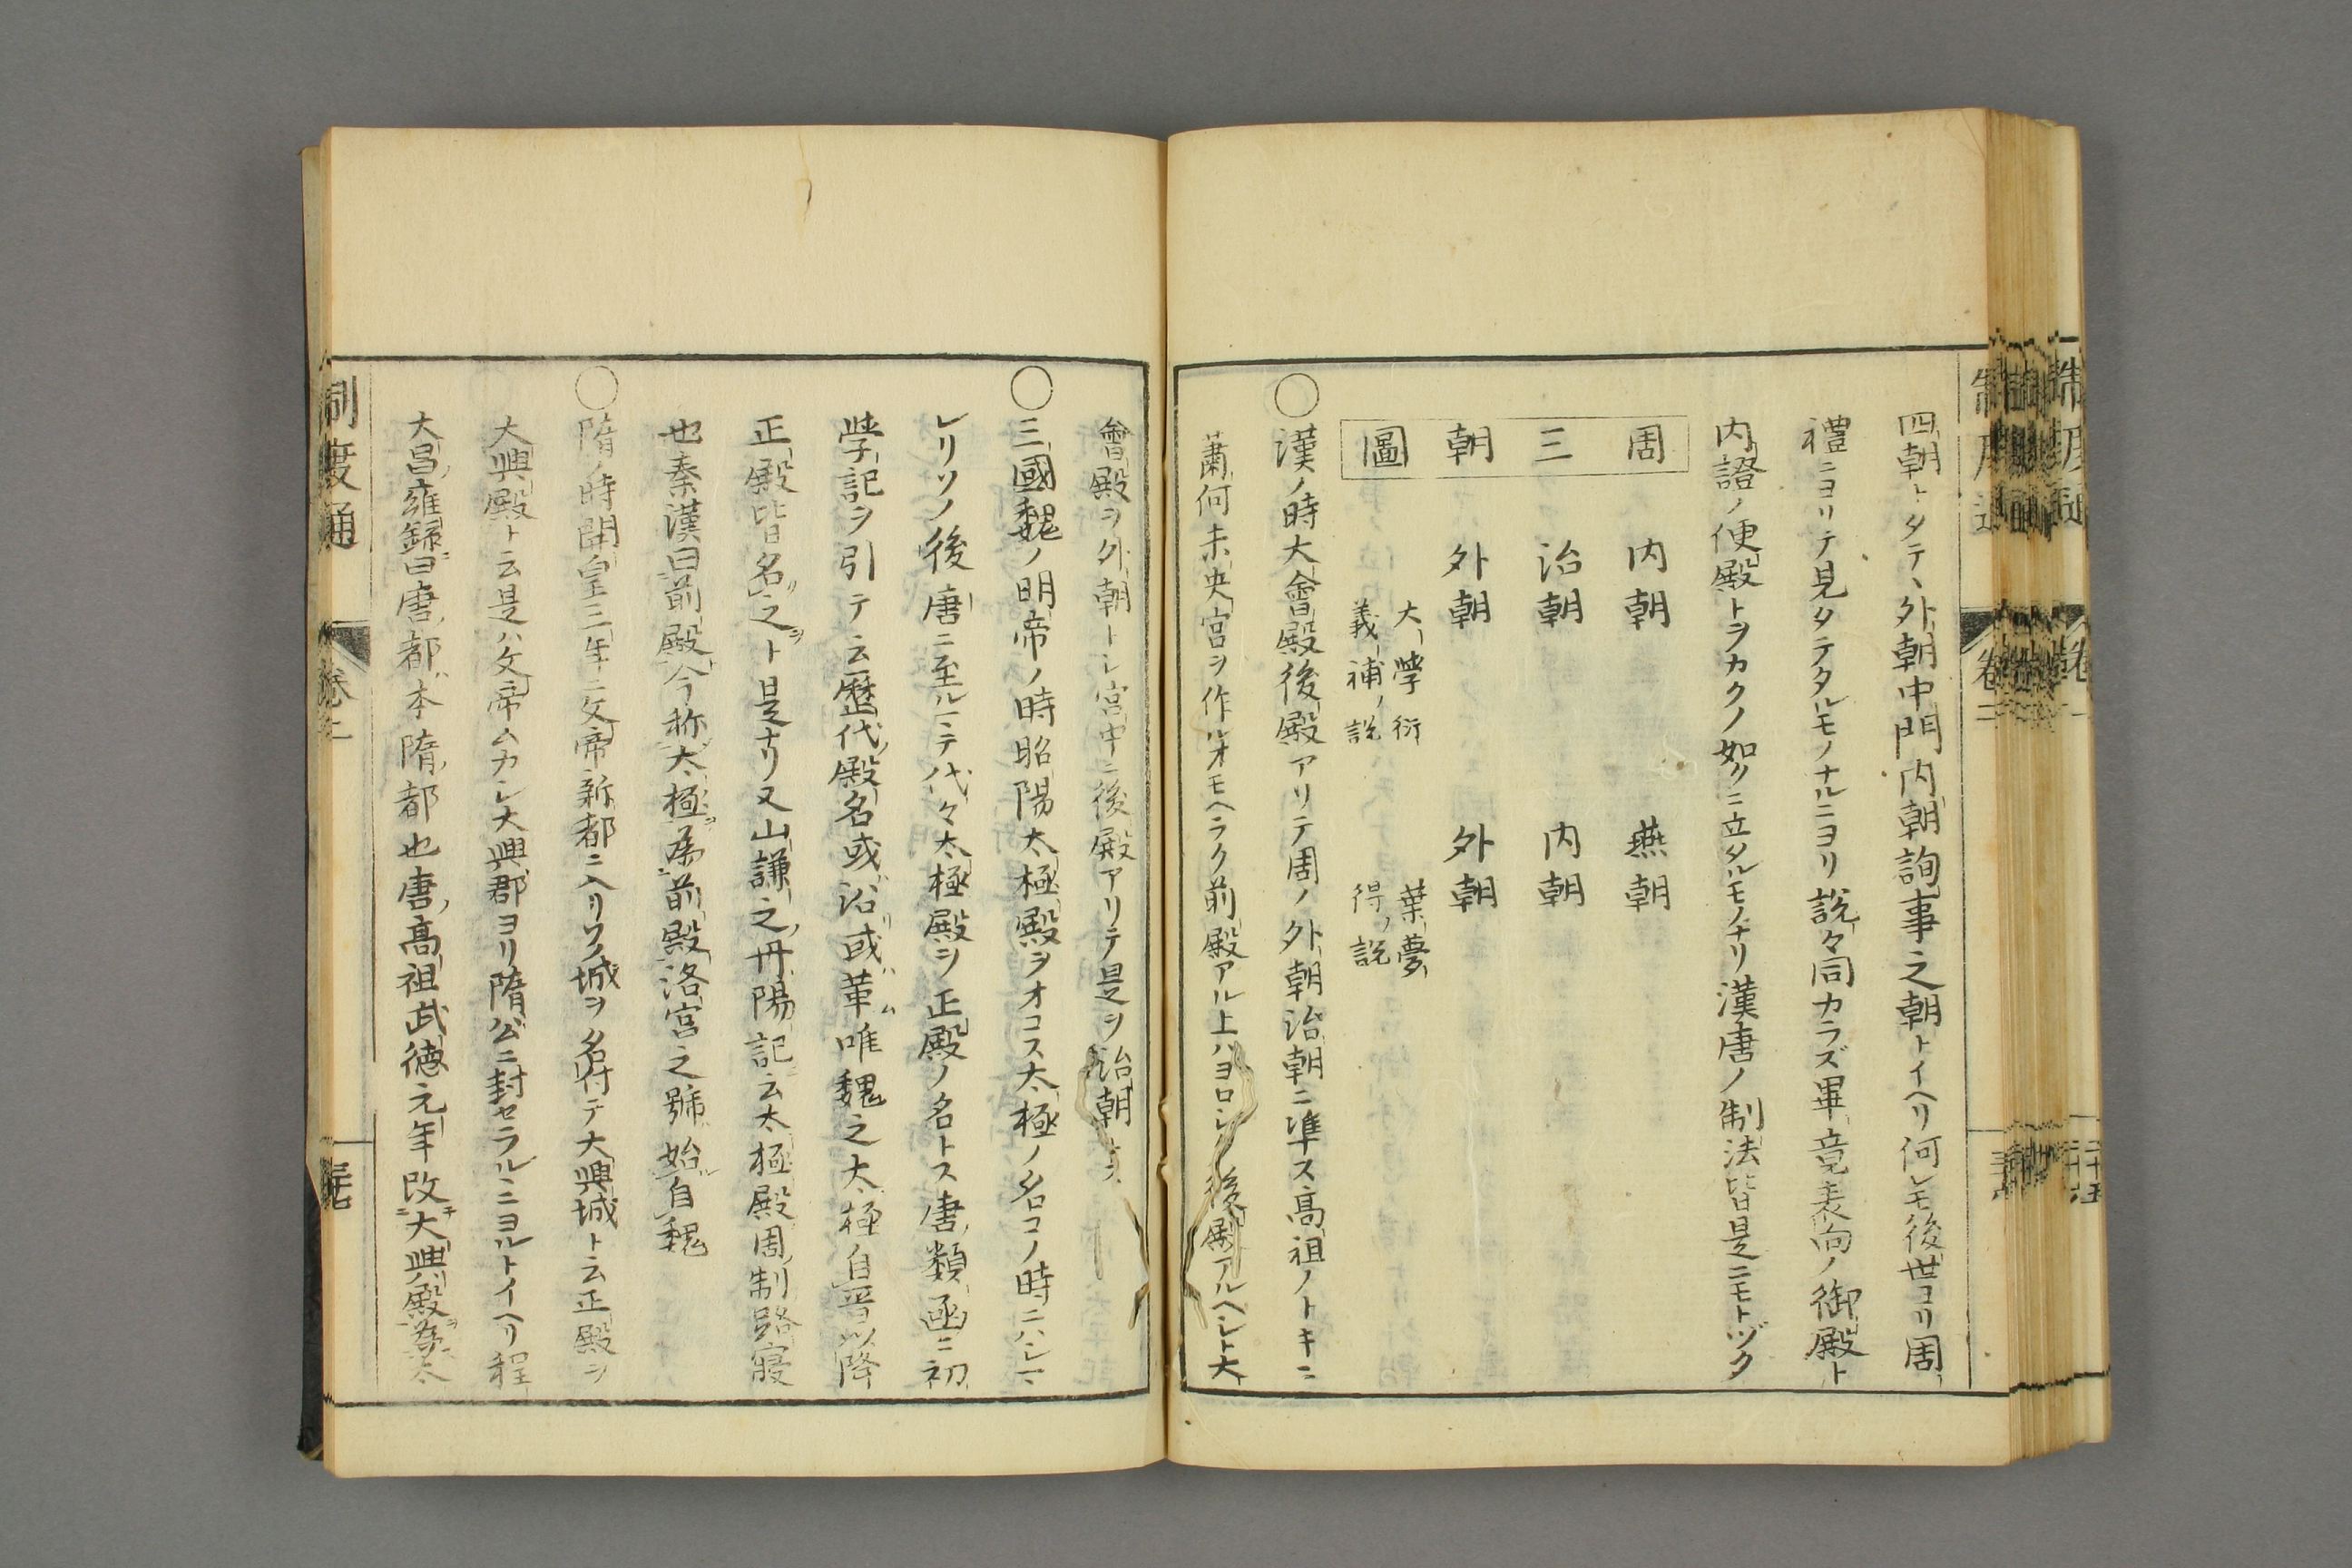 四朝トタテヽ外朝中門内朝詢事之朝トイヘリ何レモ後世ヨリ周
禮ニヨリテ見タテタルモノナルニヨリ説々同カラズ畢竟表向ノ御殿ト
内證ノ便殿トヲカクノ如クニ立タルモノナリ漢唐ノ制法皆是ニモトヅク
周三朝圖
内朝 燕朝
治朝 内朝
外朝 外朝
大學衍義補ノ説 葉夢得ノ説
○漢ノ時大會殿後殿アリテ周ノ外朝治朝ニ準ス高祖ノトキニ
蕭何未央宮ヲ作ルオモヘラク前殿アル上ハヨロシク後殿アルヘシト大
會殿ヲ外朝トシ宮中ニ後殿アリテ是ヲ治朝トス
○三國魏ノ明帝ノ時昭陽太極殿ヲオコス太極ノ名コノ時ニハシマ
レリソノ後唐ニ至ルマテ代々太極殿ヲ正殿ノ名トス唐類函ニ初
學記ヲ引テ云歷代殿名或沿或革唯魏之太極自晉以降
正殿皆名之ト是ナリ又山謙之丹陽記云太極殿周制路寢
也秦漢曰前殿今称太極為前殿洛宮之號始自魏
○隋ノ時開皇三年ニ文帝新都ニ入リソノ城ヲ名付テ大興城ト云正殿ヲ
大興殿ト云是ハ文帝ムカシ大興郡ヨリ隋公ニ封セラルニヨルトイヘリ程
大昌雍錄曰唐都本隋都也唐高祖武德元年改大興殿為太
制度通 卷之二